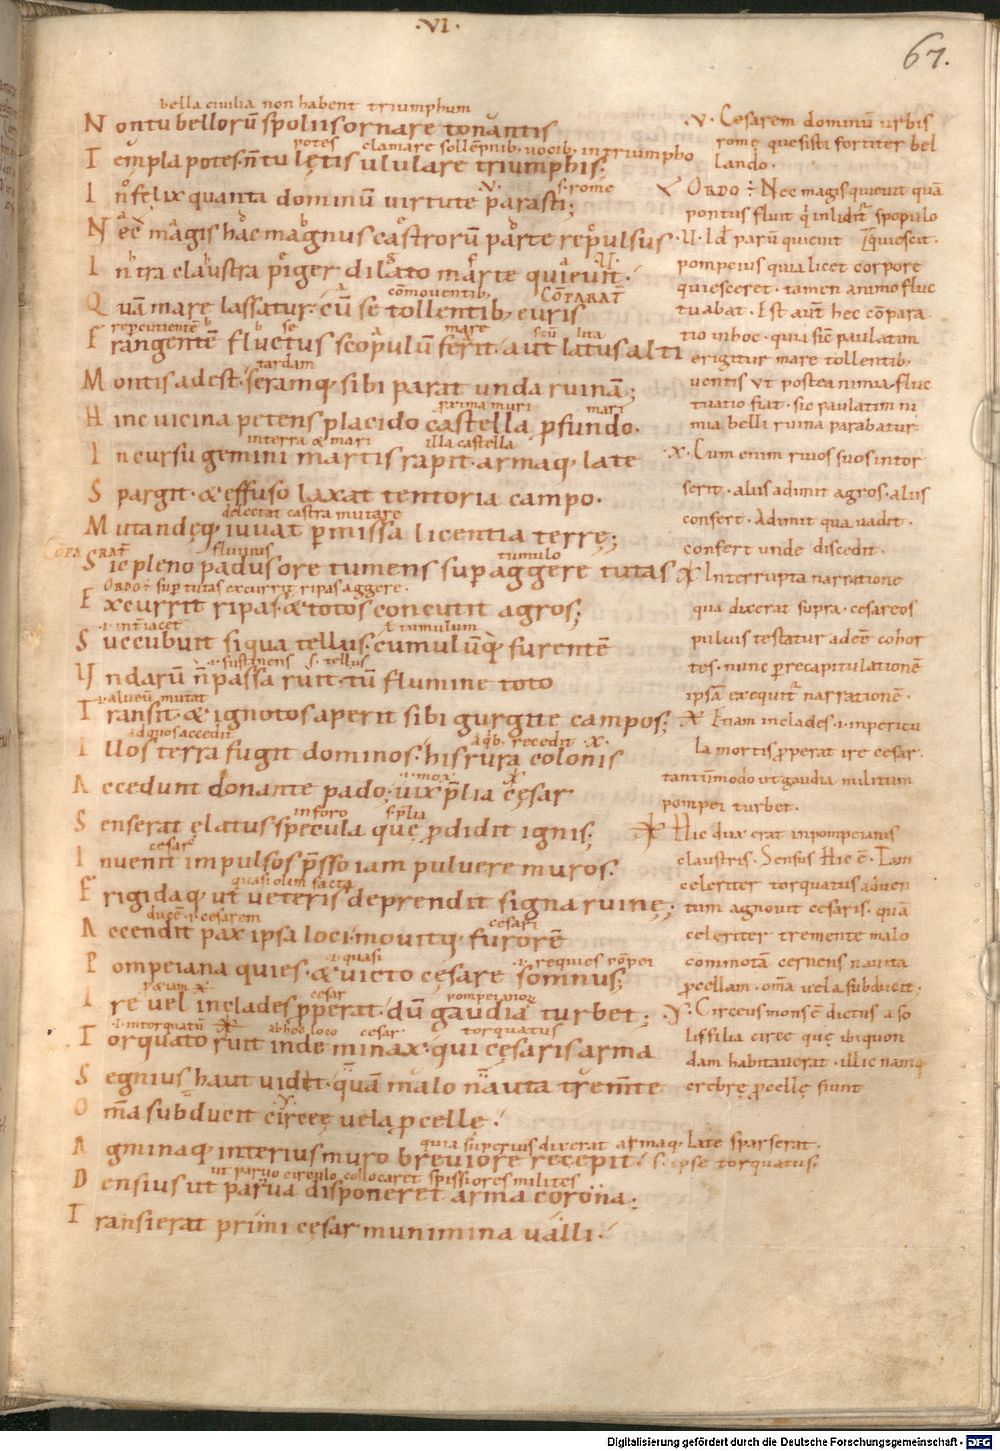 ·VI·
67.
bella civilia non habent triumphum
N on tu bellorū spoliis ornare tonantis
potes clamare sollēpnib; uocib; in triumpho
T ēmpla potes· ñ tu lętis ululare triumphis;
·v· s· rome
I nfelix quanta dominū uirtute parasti;
N ec magis hac magnus castrorū parte repulsus
I ntra claustra piger dilato marte quieuit·
cōmouentib; CŌPARAT̄
Q uā mare lassatur· cū se tollentib; euris
mare
F rangentē fluctus scopulū ferit· aut latus alti
tardam
M ontis adest· seramq; sibi parat unda ruinā;
mari
H inc uicina petens placido castella pfundo·
in terra & mari illa castella
I ncursu gemini martis rapit· armaq; late
S pargit· & effuso laxat tentoria campo·
delectat castra mutare
M utandęq; iuuat pmissa licentia terrę;
fluuius tumulo
S ic pleno padus ore tumens sup aggere tutas
ORDO ÷ sup tutas excurrit ripas aggere·
E xcurrit ripas· & totos concutit agros;
tumulum
S uccubuit si qua tellus· cumulūq; furentē
·i· sustinens s· tellus
U ndarū ñ passa ruit· tū flumine toto
·i· alueū mutat
T ransit· & ignotos aperit sibi gurgite campos;
ad quos accedit recedit ·x·
I llos terra fugit dominos· his rura colonis
·i· mox
A ccedunt donante pado; uix p̄lia cęsar
in foro s· p̄lia
S enserat ęlatus specula quę pdidit ignis;
cesar
I nuenit impulsos p̄sso iam puluere muros·
quasi olim facta
F rigidaq; ut ueteris deprendit signa ruinę;
ducē ·i· cesarem cesari
A ccendit pax ipsa loci· mouitq; furorē
·i· quasi ·i· requies pōpei
P ompeiana quies· & uicto cęsare somnus;
cesar pompeianor
I re uel in clades pperat· dū gaudia turbet;
·i· in torquatū ab hoc loco cesar· torquatus
T orquato ruit inde minax· qui cęsaris arma
S egnius haut uidit· quā malo nauta trem̄te
O m̄a subducit circeę uela pcellę·
quia superius dixerat armaq; late sparserat·
A gminaq; interius muro breuiore recepit· s· ipse torquatus;
ut paruo circulo collocaret spissiores milites
D ensius ut parua disponeret arma corona;
T ransierat primi cęsar munimina ualli·
·v· Cesarem dominū urbis
rome quesisti fortiter bel
lando·
ORDO ÷ Nec magis quieuit quā
pontus fluit q̇ inlidit͛ spopulo
·U· Id parū quieuit quiescit·
pompeius quia licet corpore
quiesceret· tamen animo fluc
tuabat· Est aut̄ hec cōpara
tio in hoc· quia sic paulatim
erigitur mare tollentib;
uentis ut postea nimia fluc
tuatio fiat· sic paulatim ni
mia belli ruina parabatur
·x· Cum enim riuos suos intor
serit· aliis adimit agros· aliis
confert· Adimit qua uadit·
confert unde discedit·
Interrupta narratione
qua dixerat supra· cesareos
puluis testatur adēē cohor
tes· nunc p recapitulationē
ipsā exequit͛ narrationē·
Etiam in clades ·i· in pericu
la mortis pperat ire cesar·
tantūmodo ut gaudia militum
pompei turbet·
Hic dux erat in pompeianis
claustris· Sensus Hic ē· Tam
celeriter torquatus aduen
tum agnouit cesaris· quā
celeriter tremente malo
commotā cernens nauita
pcellam· om̄a uela subducit;
·Y· Circeus mons ē dictus a so
lis filia circe quę ibi quon
dam habitauerat· illic namq;
crebrę pcellę fiunt
Digitalisierung gefördert durch die Deutsche Forschungsgemeinschaft - DFG